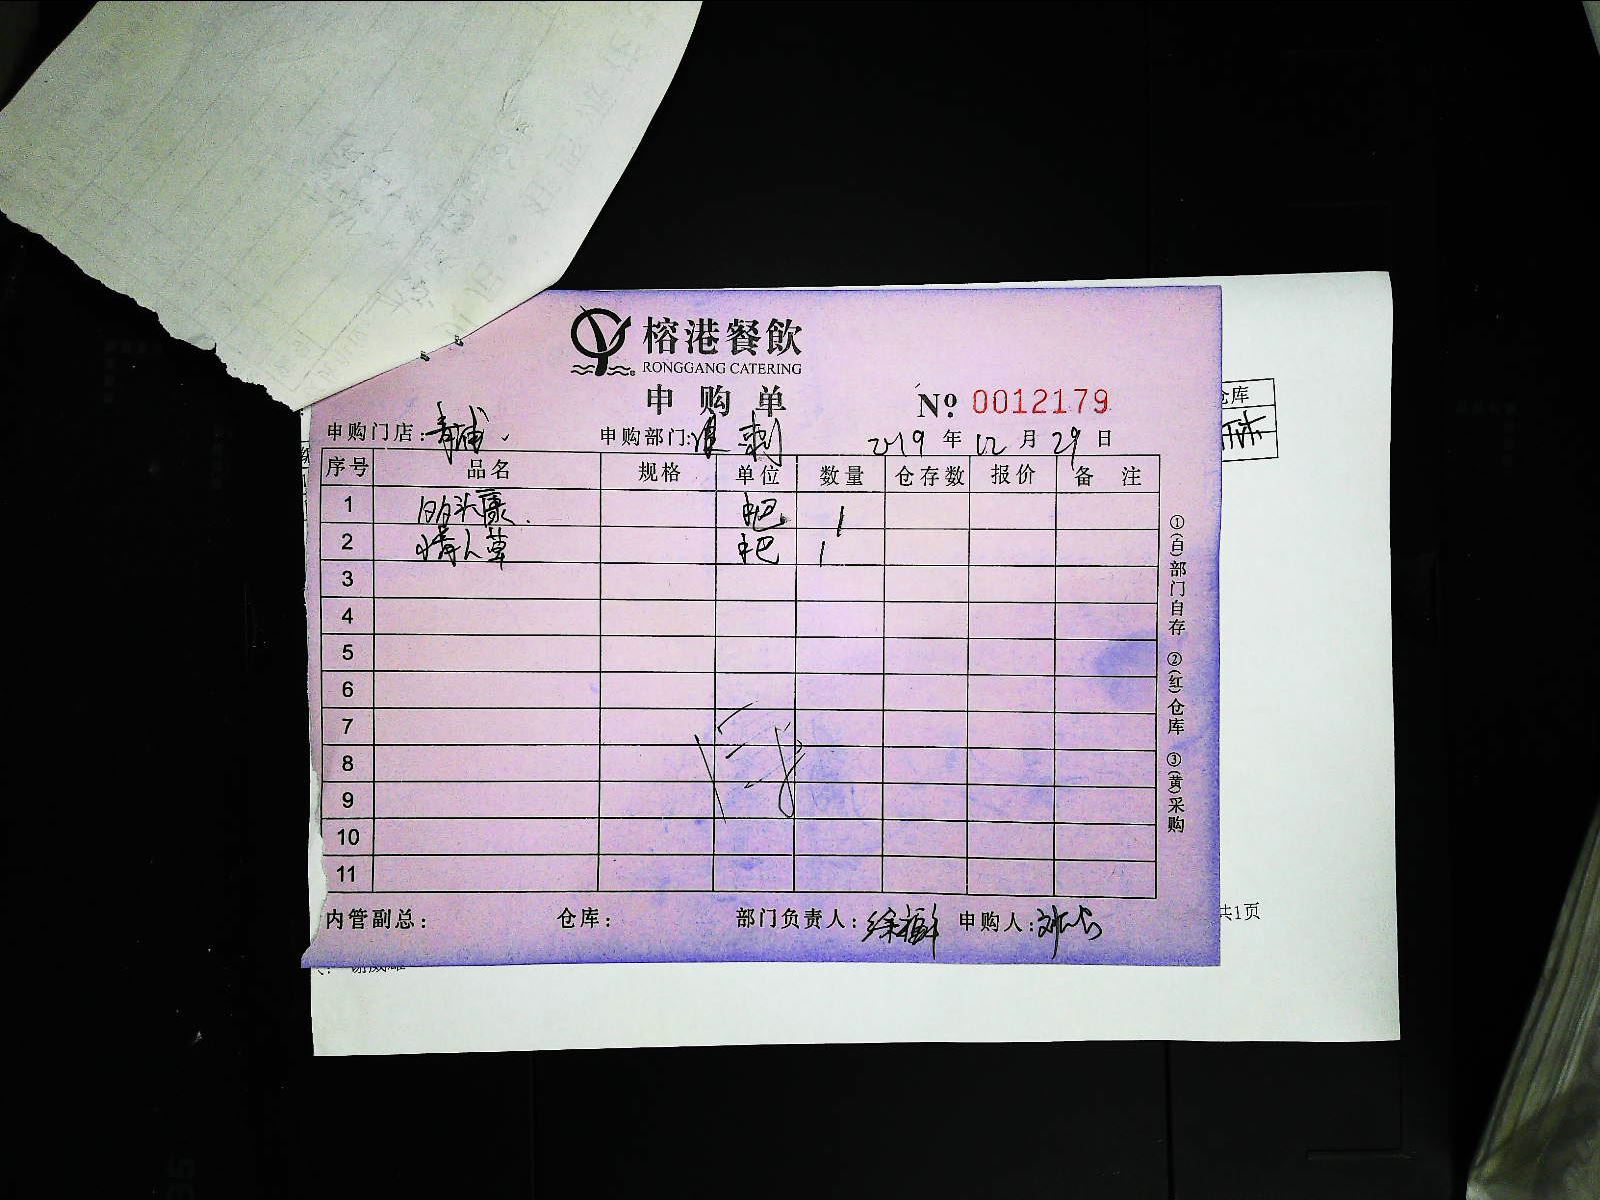 榕港餐飲
RONGGANG CATERING
申购单
№ 0012179
申购门店：青浦
申购部门：刺
2019 年 12 月 29 日
仓库
序号 品名 规格 单位 数量 仓存数 报价 备注
1 把 1
2 情人草 把 1
3
4
5
6
7
8
9
10
11
①(白)部门自存 ②(红)仓库 ③(黄)采购
内管副总： 仓库： 部门负责人：徐 申购人：
共1页